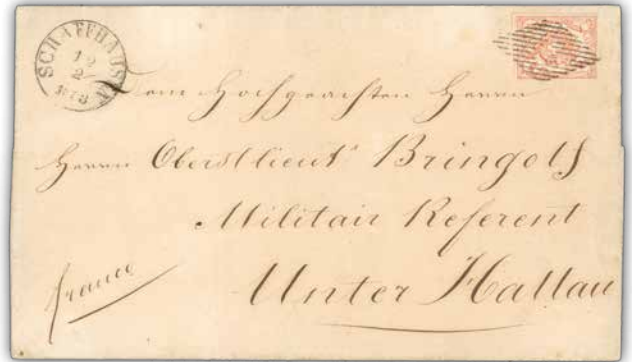 SCHAFFHAUSEN
Dem Hochgeachten Herrn
Herrn Oberstlieut Bringolf
Militair Referent
franco
Unter Hallau